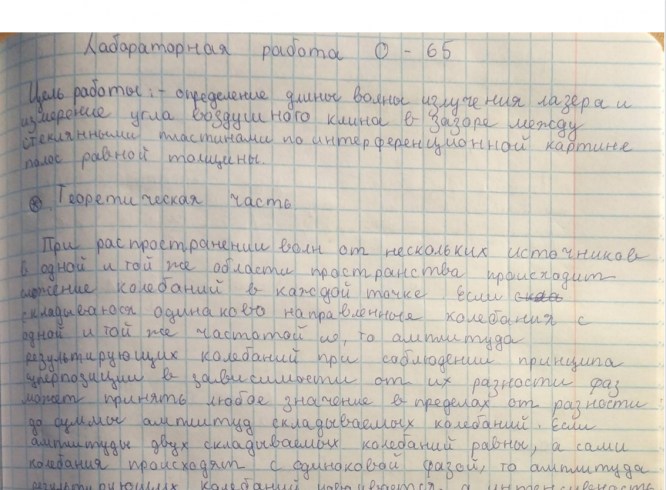 Лабараторная работа О - 65
Цель работы: - определение длины волны излучения лазера и
измерение угла воздушного клина в зазоре между
стеклянными пластинами по интерференционной картине
полос равной толщины.
Теоретическая часть
При распространении волн от нескольких источников
в одной и той же области пространства происходит
сложение колебаний в каждой точке. Если
складываюся одинаково направленные колебания с
одной и той же частотой ω, то амплитуда
результирующих колебаний при соблюдении принципа
суперпозиции в зависимости от их разности фаз
может принять любое значение в пределах от разности
до суммы амплитуд складываемых колебаний. Если
амплитуды двух складываемых колебаний равны, а сами
колебания происходят с одинаковой фазой, то амплитуда
результирующих колебаний а интенсивность